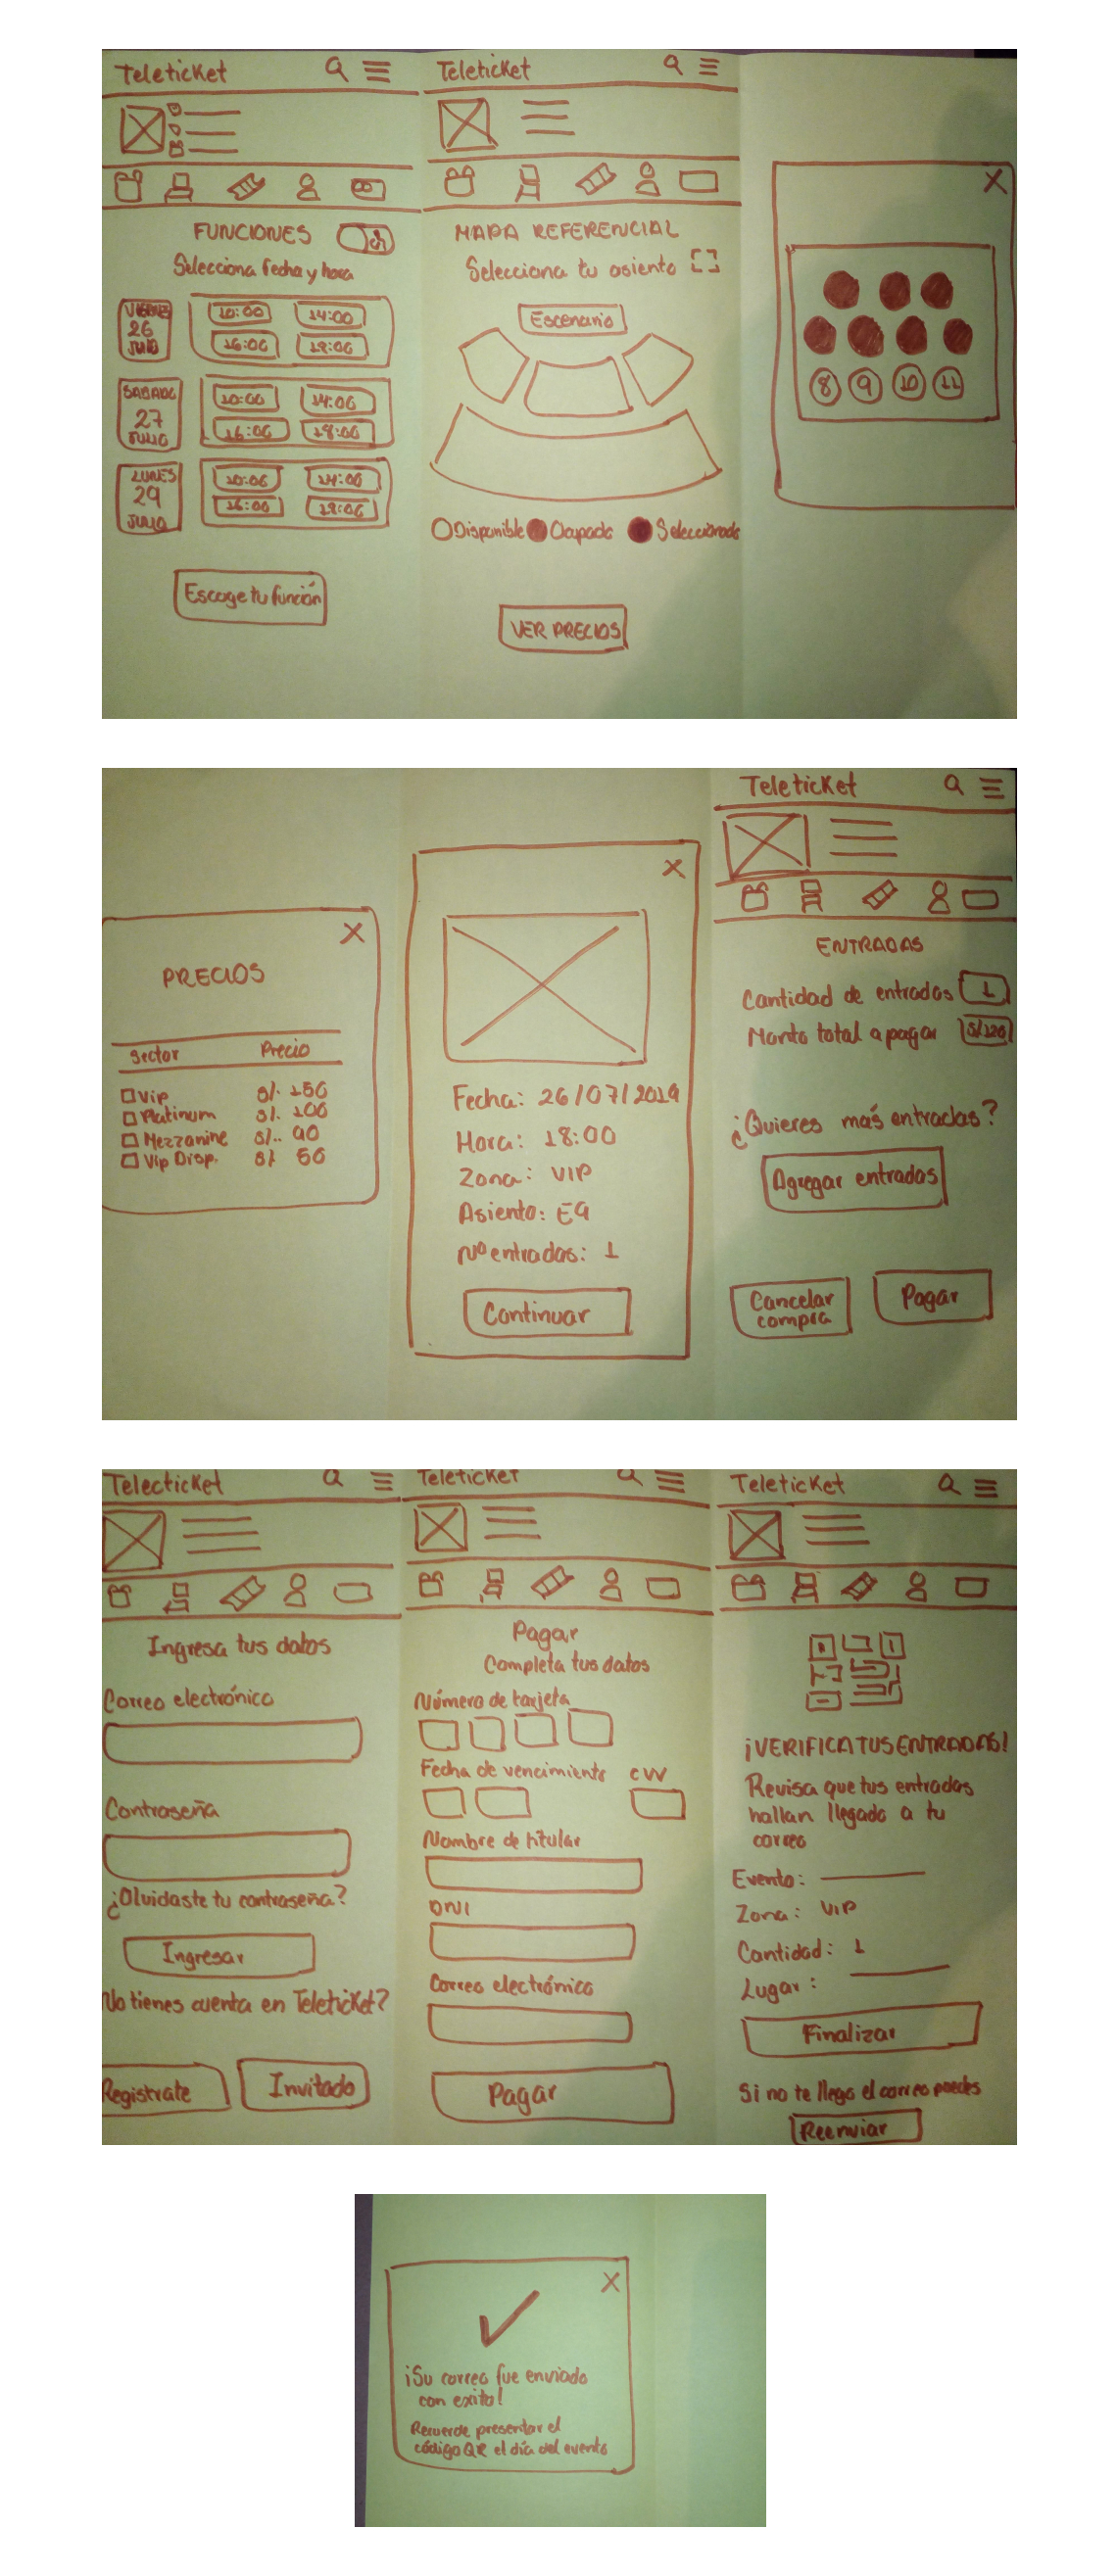 Teleticket
FUNCIONES
Selecciona fecha y hora
VIERNES
26
JULIO
10:00
14:00
16:00
18:00
SABADO
27
JULIO
10:00
14:00
16:00
18:00
LUNES
29
JULIO
10:00
14:00
16:00
18:00
Escoge tu función
Teleticket
MAPA REFERENCIAL
Selecciona tu asiento
Escenario
Disponible Ocupado Seleccionado
VER PRECIOS
X
8 9 10 11
X
PRECIOS
Sector Precio
Vip s/. 150
Platinum s/. 100
Mezzanine s/.. 90
Vip Disp. s/ 50
X
Fecha: 26/07/2019
Hora: 18:00
Zona: VIP
Asiento: E9
Nº entradas: 1
Continuar
Teleticket
ENTRADAS
Cantidad de entradas 1
Monto total a pagar S/120
¿Quieres más entradas?
Agregar entradas
Cancelar
compra
Pagar
Telecticket
Ingresa tus datos
Correo electrónico
Contraseña
¿Olvidaste tu contraseña?
Ingresar
No tienes cuenta en Teleticket?
Registrate
Invitado
Teleticket
Pagar
Completa tus datos
Número de tarjeta
Fecha de vencimiento CVV
Nombre de titular
DNI
Correo electrónico
Pagar
Teleticket
¡VERIFICA TUS ENTRADAS!
Revisa que tus entradas
hallan llegado a tu
correo
Evento:
Zona: VIP
Cantidad: 1
Lugar:
Finalizar
Si no te llego el correo puedes
Reenviar
X
¡Su correo fue enviado
con exito!
Recuerde presentar el
código QR el día del evento